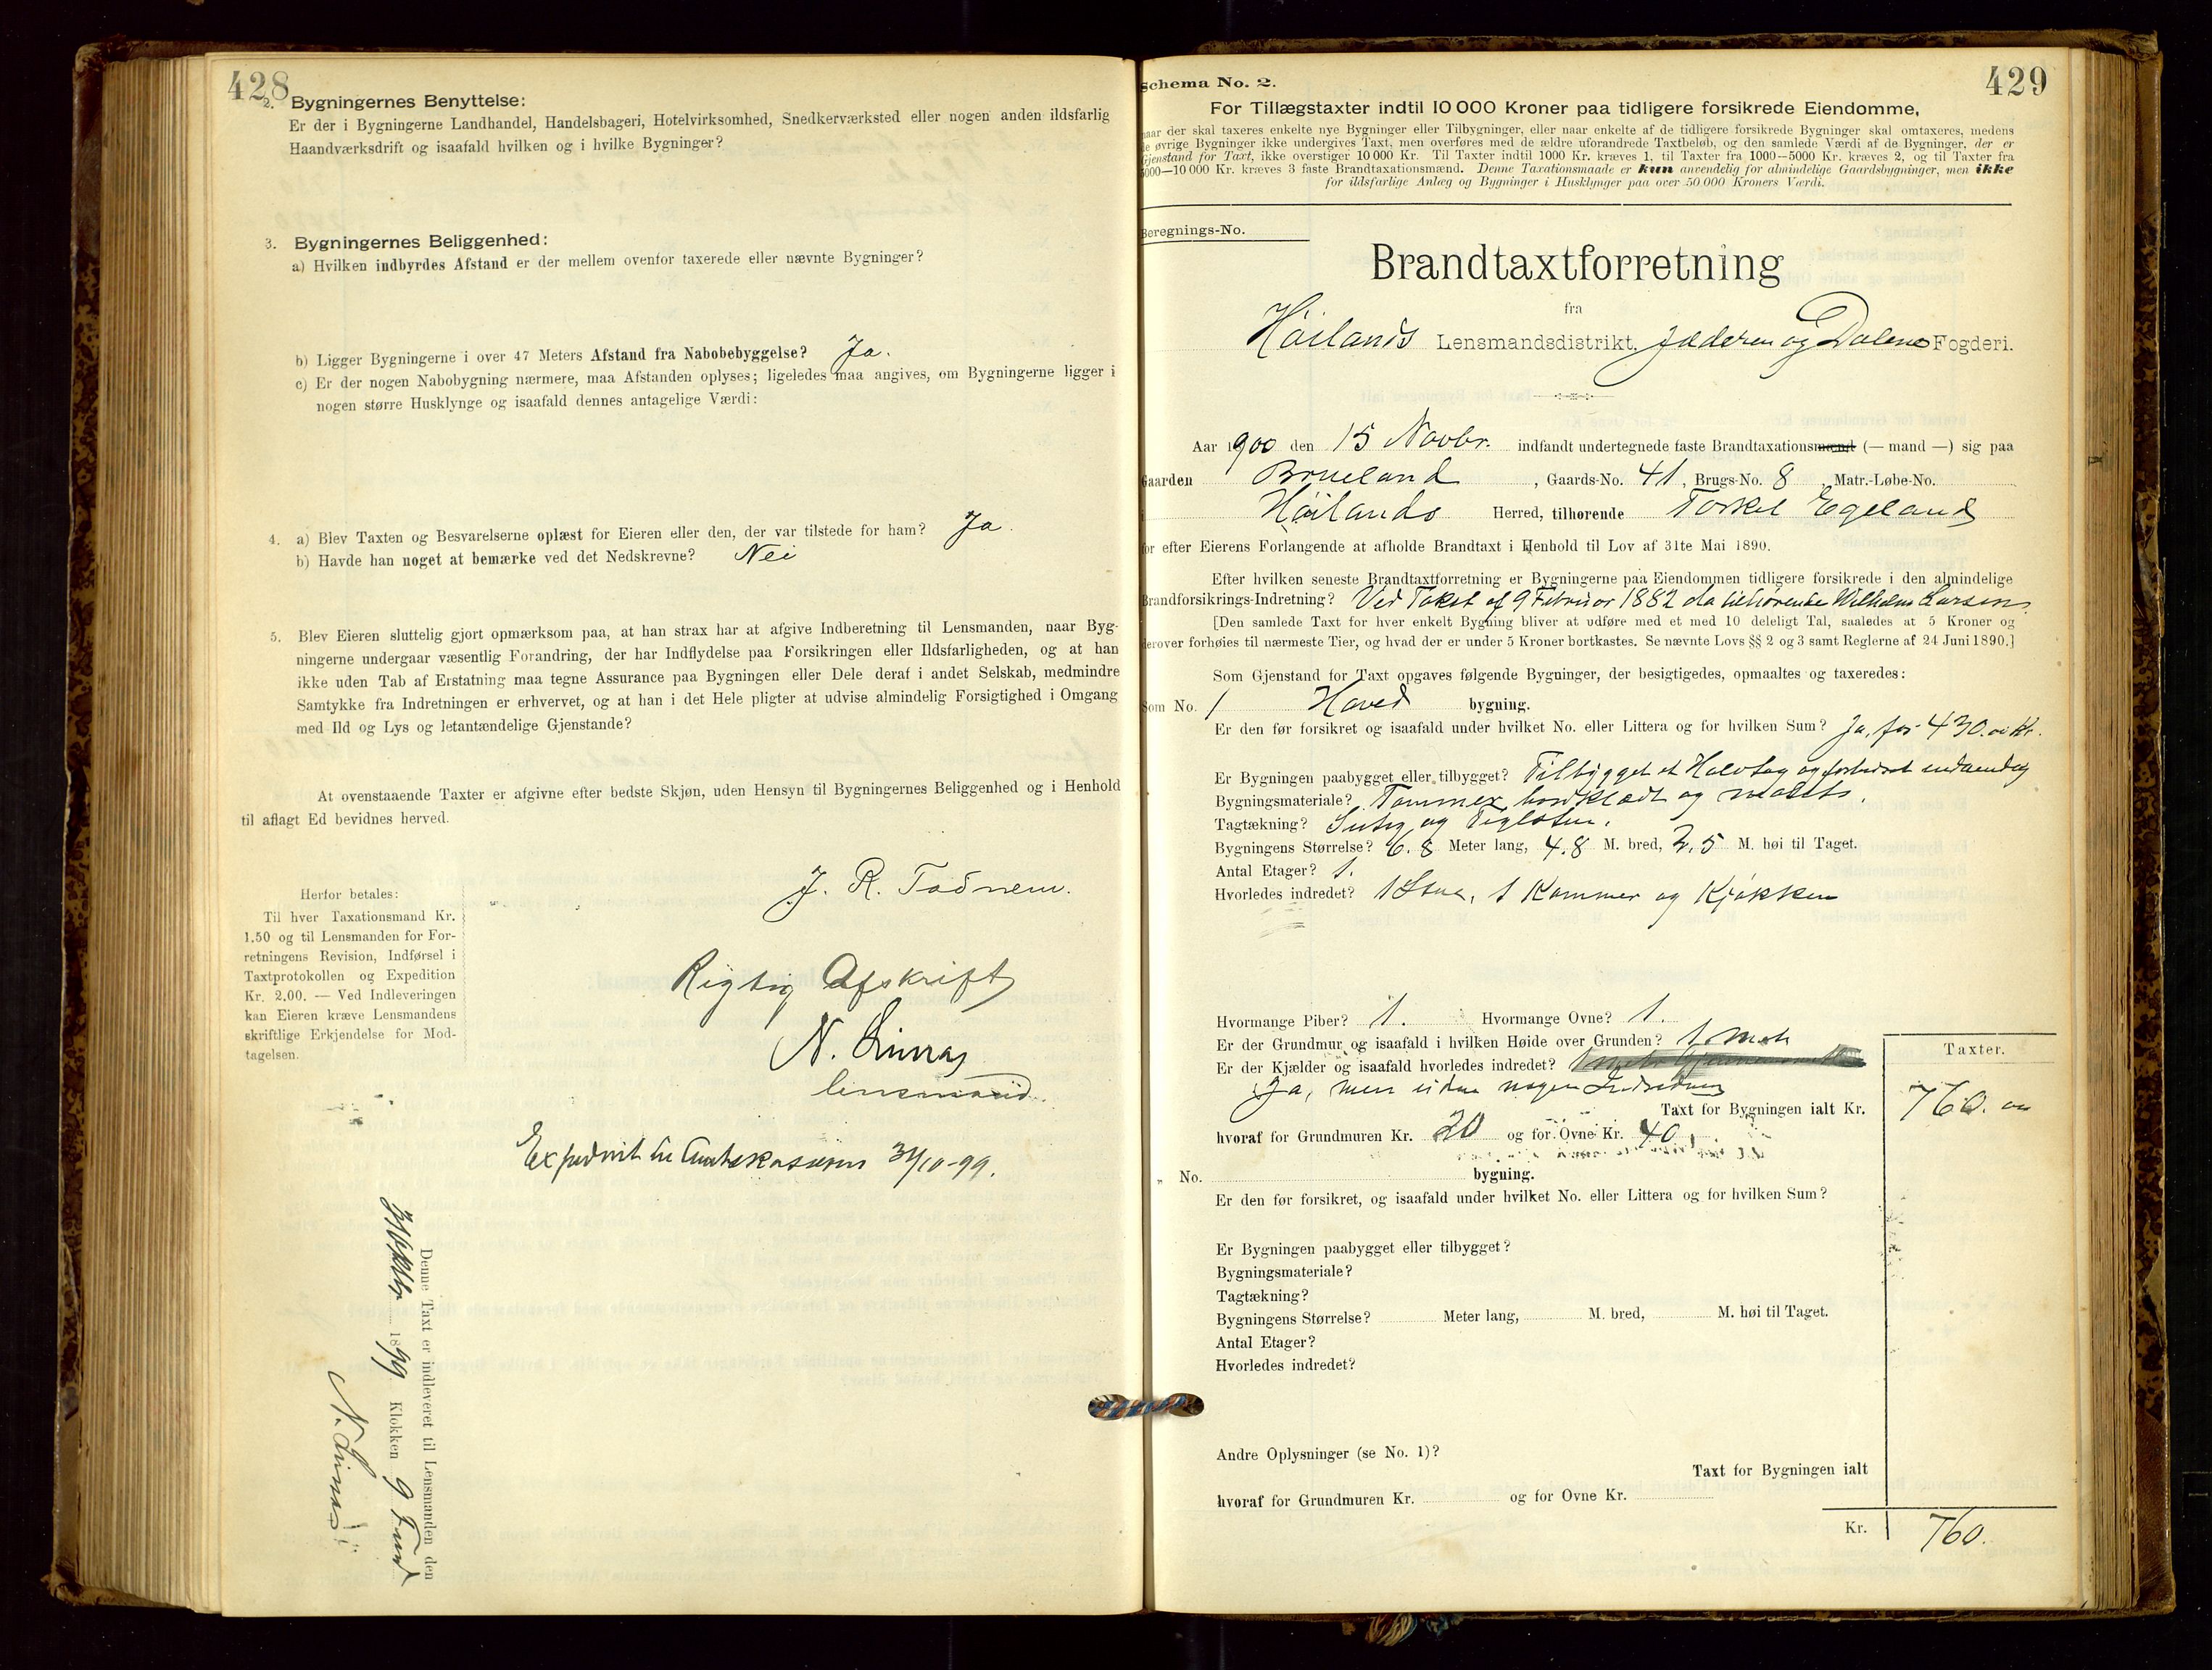 428
2. Bygningernes Benyttelse:
Er der i Bygningerne Landhandel, Handelsbageri, Hotelvirksomhed, Snedkerværksted eller nogen anden ildsfarlig
Haandværksdrift og isaafald hvilken og i hvilke Bygninger?
3. Bygningernes Beliggenhed:
a) Hvilken indbyrdes Afstand er der mellem ovenfor taxerede eller nævnte Bygninger?
b) Ligger Bygningerne i over 47 Meters Afstand fra Nabobebyggelse? Ja.
c) Er der nogen Nabobygning nærmere, maa Afstanden oplyses; ligeledes maa angives, om Bygningerne ligger i
nogen større Husklynge og isaafald dennes antagelige Værdi:
4. a) Blev Taxten og Besvarelserne oplæst for Eieren eller den, der var tilstede for ham? Ja.
b) Havde han noget at bemærke ved det Nedskrevne? Nei
5. Blev Eieren sluttelig gjort opmærksom paa, at han strax har at afgive Indberetning til Lensmanden, naar Byg-
ningerne undergaar væsentlig Forandring, der har Indflydelse paa Forsikringen eller Ildsfarligheden, og at han
ikke uden Tab af Erstatning maa tegne Assurance paa Bygningen eller Dele deraf i andet Selskab, medmindre
Samtykke fra Indretningen er erhvervet, og at han i det Hele pligter at udvise almindelig Forsigtighed i Omgang
med Ild og Lys og letantændelige Gjenstande?
At ovenstaaende Taxter er afgivne efter bedste Skjøn, uden Hensyn til Bygningernes Beliggenhed og i Henhold
til aflagt Ed bevidnes herved.
J. R. Tadnem.
Herfor betales:
Til hver Taxationsmand Kr.
1.50 og til Lensmanden for For-
retningens Revision, Indførsel i
Taxtprotokollen og Expedition
Kr. 2.00. — Ved Indleveringen
kan Eieren kræve Lensmandens
skriftlige Erkjendelse for Mod-
tagelsen.
Rigtig Afskrift
N.
lensmand.
31/10-99.
Denne Taxt er indleveret til Lensmanden den
31 Oktbr 1899 Klokken 9 Form
N.
429
Schema No. 2.
For Tillægstaxter indtil 10 000 Kroner paa tidligere forsikrede Eiendomme,
naar der skal taxeres enkelte nye Bygninger eller Tilbygninger, eller naar enkelte af de tidligere forsikrede Bygninger skal omtaxeres, medens
de øvrige Bygninger ikke undergives Taxt, men overføres med de ældre uforandrede Taxtbeløb, og den samlede Værdi af de Bygninger, der er
Gjenstand for Taxt, ikke overstiger 10 000 Kr. Til Taxter indtil 1000 Kr. kræves 1, til Taxter fra 1000—5000 Kr. kræves 2, og til Taxter fra
5000—10 000 Kr. kræves 3 faste Brandtaxationsmænd. Denne Taxationsmaade er kun anvendelig for almindelige Gaardsbygninger, men ikke
for ildsfarlige Anlæg og Bygninger i Husklynger paa over 50 000 Kroners Værdi.
Beregnings-No.
Brandtaxtforretning
fra
Høilands Lensmandsdistrikt, Jæderen og Dalene Fogderi.
Aar 1900 den 15 Novbr. indfandt undertegnede faste Brandtaxationsmænd (— mand —) sig paa
Gaarden Brueland, Gaards-No. 41, Brugs-No. 8, Matr.-Løbe-No.
i Høilands Herred, tilhørende Torkel Egeland
for efter Eierens Forlangende at afholde Brandtaxt i Henhold til Lov af 31te Mai 1890.
Efter hvilken seneste Brandtaxtforretning er Bygningerne paa Eiendommen tidligere forsikrede i den almindelige
Brandforsikrings-Indretning? Ved Takst af 9 Februar 1882 da tilhørende Wilhelm Larsen
[Den samlede Taxt for hver enkelt Bygning bliver at udføre med et med 10 deleligt Tal, saaledes at 5 Kroner og
derover forhøies til nærmeste Tier, og hvad der er under 5 Kroner bortkastes. Se nævnte Lovs §§ 2 og 3 samt Reglerne af 24 Juni 1890.]
Som Gjenstand for Taxt opgaves følgende Bygninger, der besigtigedes, opmaaltes og taxeredes:
Som No. 1 Hoved bygning.
Er den før forsikret og isaafald under hvilket No. eller Littera og for hvilken Sum? Ja, for 430.00 Kr.
Er Bygningen paabygget eller tilbygget? Tilbygget et Halvtag og forbedret indvendig
Bygningsmateriale? Tømmer, bordklædt og malet.
Tagtækning? og Teglsten.
Bygningens Størrelse? 6.8 Meter lang, 4.8 M. bred, 2.5 M. høi til Taget.
Antal Etager? 1.
Hvorledes indredet? 1 Stue, 1 Kammer og Kjøkken
Hvormange Piber? 1. Hvormange Ovne? 1.
Er der Grundmur og isaafald i hvilken Høide over Grunden? 1 Met
Er der Kjælder og isaafald hvorledes indredet?
Ja, men uden nogen Indredning
Taxter.
Taxt for Bygningen ialt Kr. 760. 00
hvoraf for Grundmuren Kr. 20 og for Ovne Kr. 40.
" No. bygning.
Er den før forsikret, og isaafald under hvilket No. eller Littera og for hvilken Sum?
Er Bygningen paabygget eller tilbygget?
Bygningsmateriale?
Tagtækning?
Bygningens Størrelse? Meter lang, M. bred, M. høi til Taget.
Antal Etager?
Hvorledes indredet?
Andre Oplysninger (se No. 1)?
Taxt for Bygningen ialt
hvoraf for Grundmuren Kr. og for Ovne Kr.
Kr. 760.